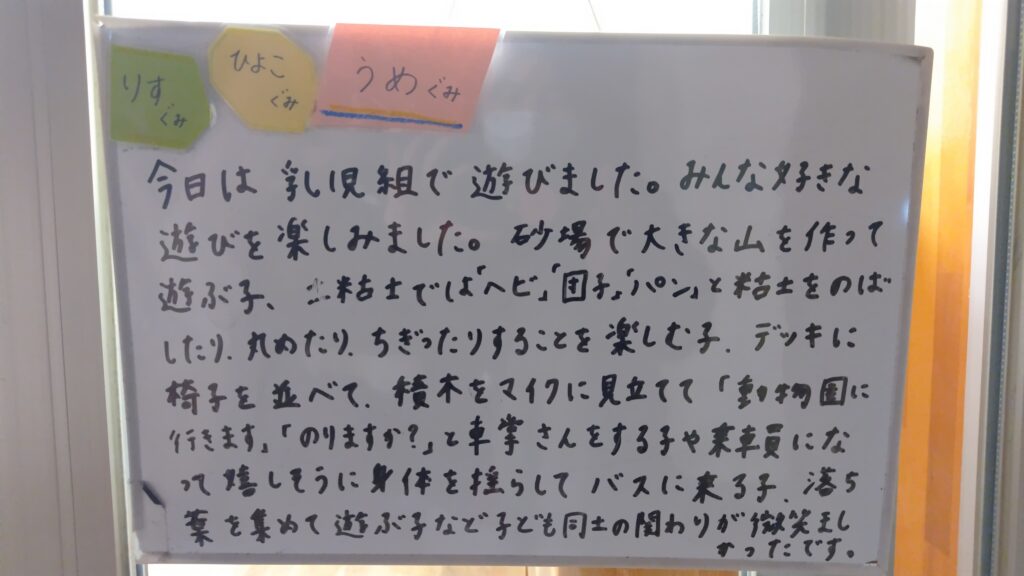 りすぐみ
ひよこぐみ
うめぐみ
今日は乳児組で遊びました。みんな好きな
遊びを楽しみました。砂場で大きな山を作って
遊ぶ子、土粘土では「ヘビ」「団子」「パン」と粘土をのば
したり、丸めたり、ちぎったりすることを楽しむ子、デッキに
椅子を並べて、積木をマイクに見立てて「動物園に
行きます」「のりますか?」と車掌さんをする子や乗車員にな
って嬉しそうに身体を揺らしてバスに乗る子、落ち
葉を集めて遊ぶ子など子ども同士の関わりが微笑まし
かったです。